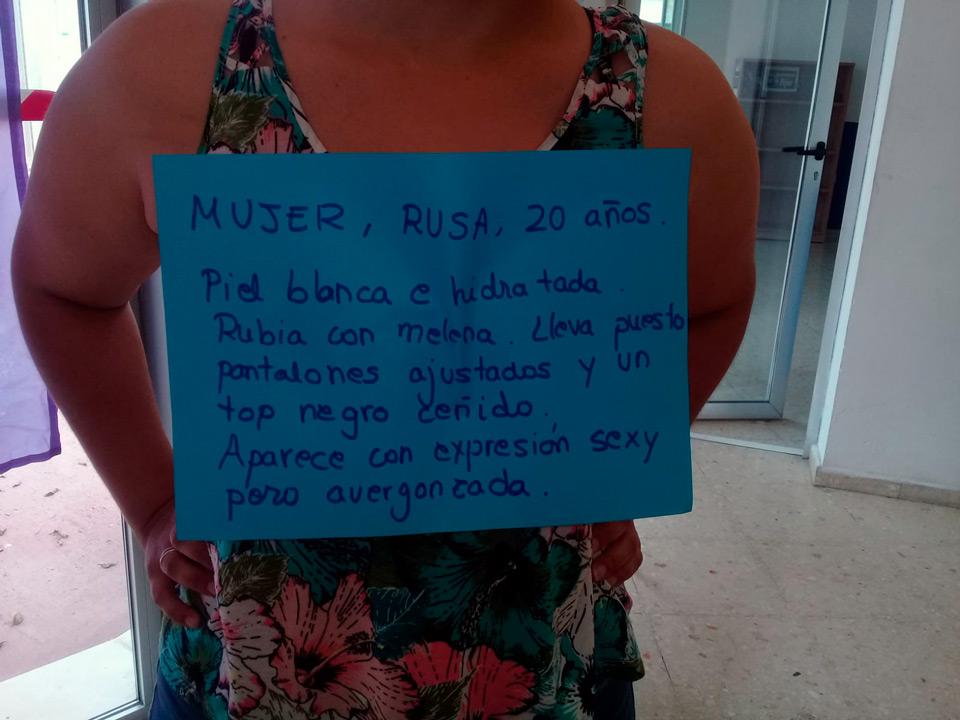 MUJER, RUSA, 20 años.
Piel blanca e hidratada.
Rubia con melena. Lleva puesto
pantalones ajustados y un
top negro ceñido.
Aparece con expresión sexy
pero avergonzada.